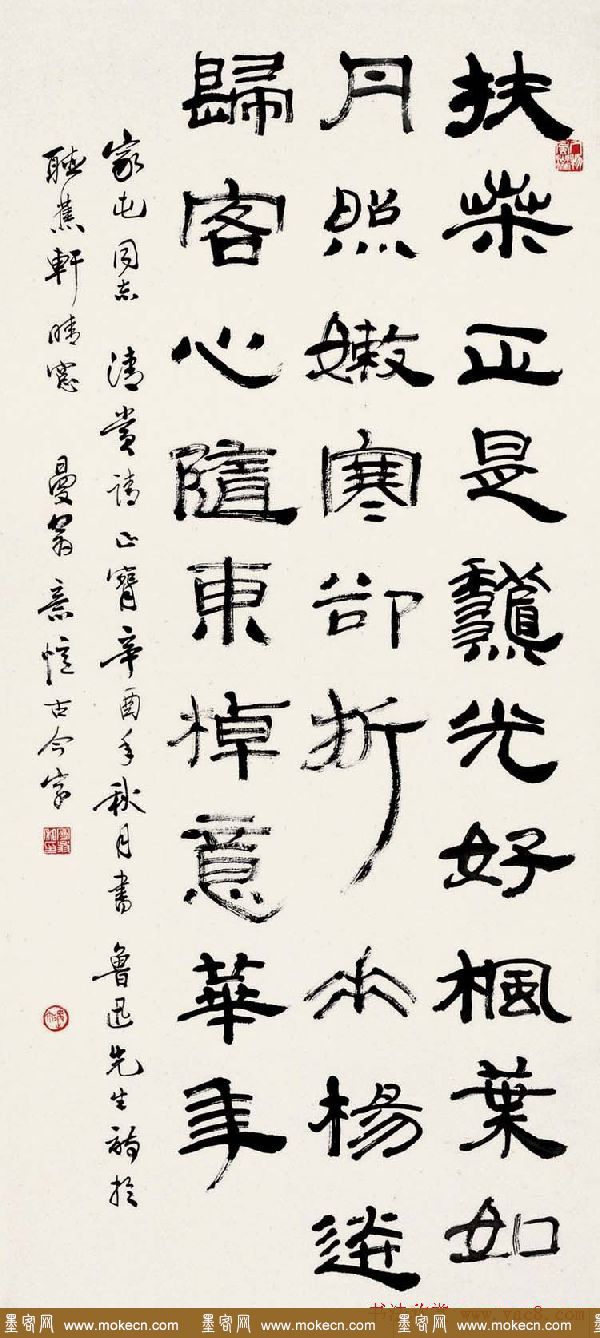 扶桒正是龝光好楓葉如
丹照嫩寒卻折垂楊送
歸客心隨東棹意華年
家屯同志 清賞請正 辛酉年秋月書 魯迅先生詩於
聽蕉軒晴窓 曼翁 意憶古今字
书法欣赏 www.yac8.com
墨密网 www.mokecn.com 墨密网 www.mokecn.com 墨密网 www.mokecn.com 墨密网 www.mokecn.com